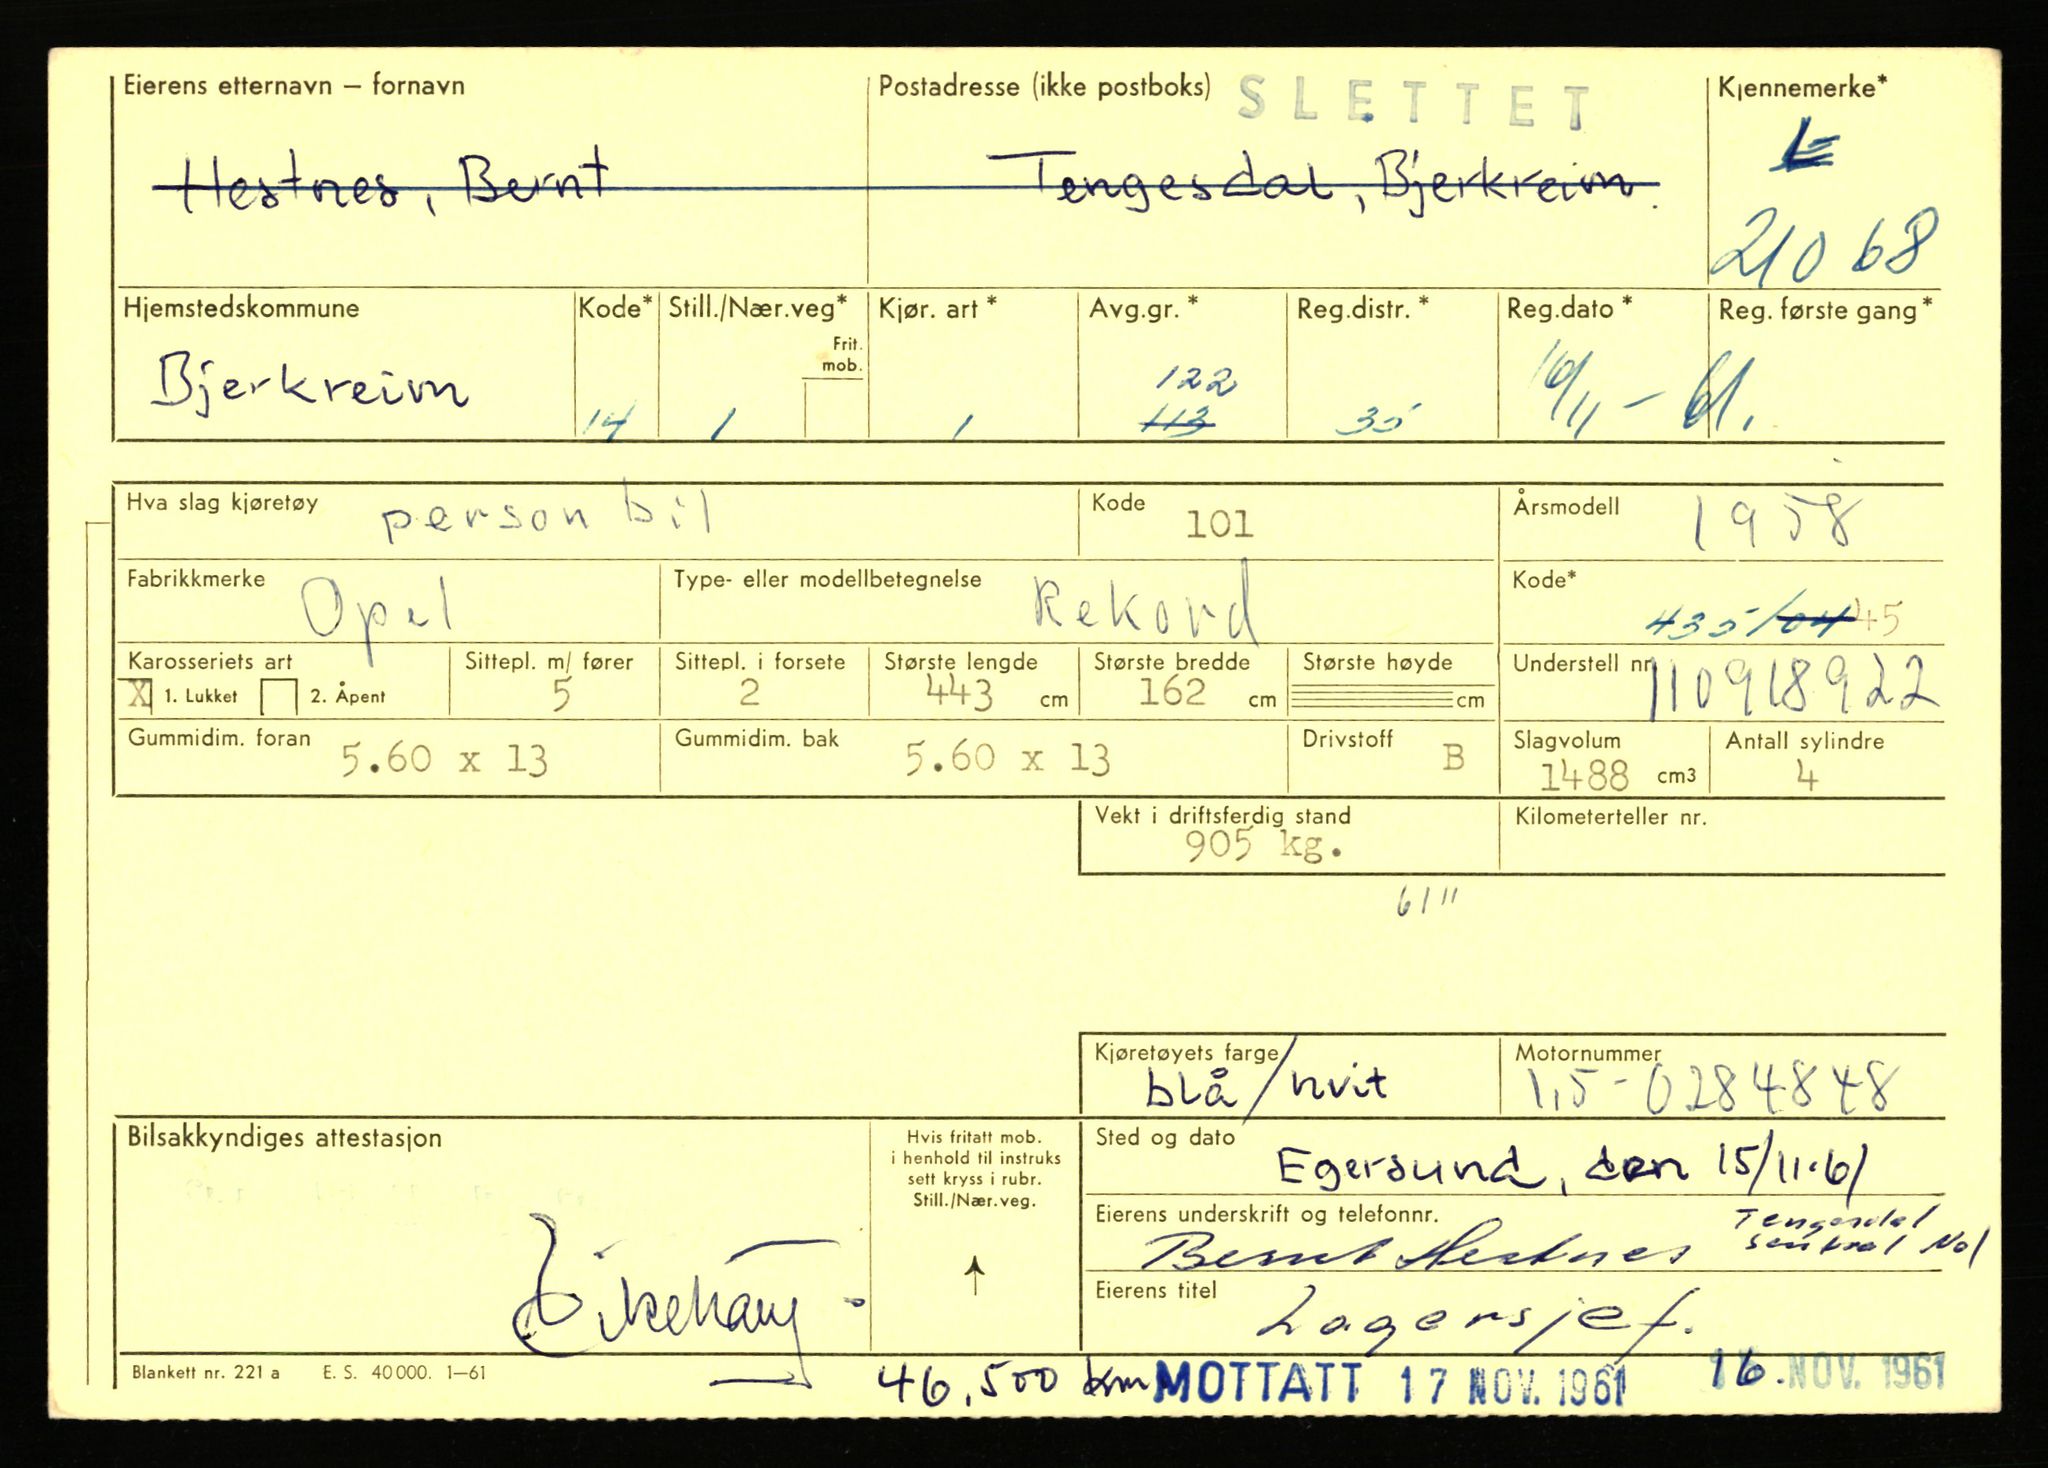 Eierens etternavn – fornavn Postadresse (ikke postboks) SLETTET Kjennemerke*
L
Hestnes, Bernt Tengesdal, Bjerkreim.
21068
Hjemstedskommune Kode* Still./Nær.veg* Kjør. art * Avg.gr. * Reg.distr. * Reg.dato * Reg. første gang *
Frit.
mob.
122
Bjerkreim 14 1 1 113 35 16/11 - 61.
Hva slag kjøretøy person bil Kode 101 Årsmodell 1958
Fabrikkmerke Opel Type- eller modellbetegnelse Rekord Kode* 435/04 45
Karosseriets art Sittepl. m/ fører Sittepl. i forsete Største lengde Største bredde Største høyde Understell nr. 110918922
X 1. Lukket 2. Åpent 5 2 443 cm 162 cm cm
Gummidim. foran 5.60 x 13 Gummidim. bak 5.60 x 13 Drivstoff B Slagvolum 1488 cm3 Antall sylindre 4
Vekt i driftsferdig stand Kilometerteller nr.
905 kg.
61"
Kjøretøyets farge Motornummer
blå/hvit 1,5-0284848
Bilsakkyndiges attestasjon
Hvis fritatt mob.
i henhold til instruks
sett kryss i rubr.
Still./Nær.veg.
Sted og dato
Egersund, den 15/11-61
Eierens underskrift og telefonnr.
Bernt Hestnes Tengesdal
sentral No 1
Eierens titel
Lagersjef.
Blankett nr. 221 a E. S. 40 000. 1–61
46.500 km MOTTATT 17 NOV. 1961 16. NOV. 1961